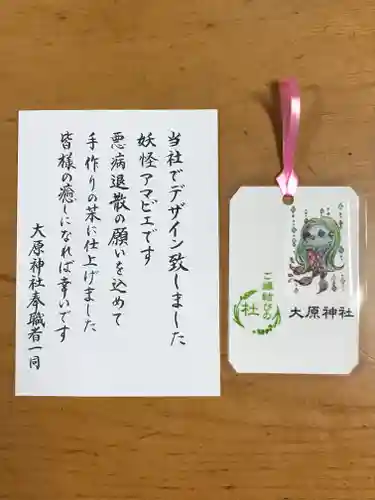 当社でデザイン致しました
妖怪アマビエです
悪病退散の願いを込めて
手作りの栞に仕上げました
皆様の癒しになれば幸いです
大原神社奉職者一同
ご縁結びの
杜
大原神社